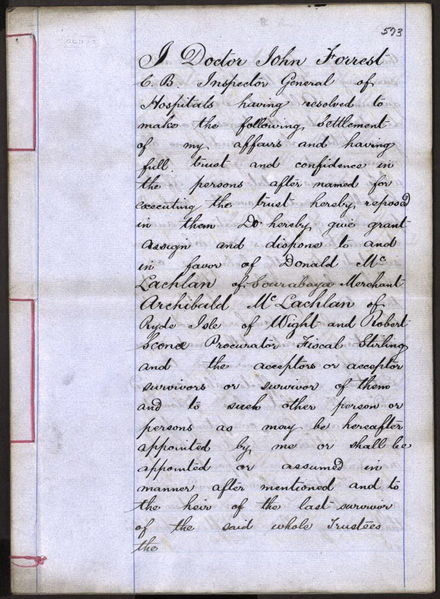 593
I Doctor John Forrest
C. B. Inspector General of
Hospitals having resolved to
make the following Settlement
of my affairs and having
full trust and confidence in
the persons after named for
executing the trust hereby reposed
in them Do hereby give grant
assign and dispone to and
in favor of Donald Mc
Lachlan of Sourabaya Merchant
Archibald McLachlan of
Ryde Isle of Wight and Robert
Procurator Fiscal Stirling
and the acceptors or acceptor
survivors or survivor of them
and to such other person or
persons as may be hereafter
appointed by me or shall be
appointed or assumed in
manner after mentioned and to
the heir of the last survivor
of the said whole Trustees
the